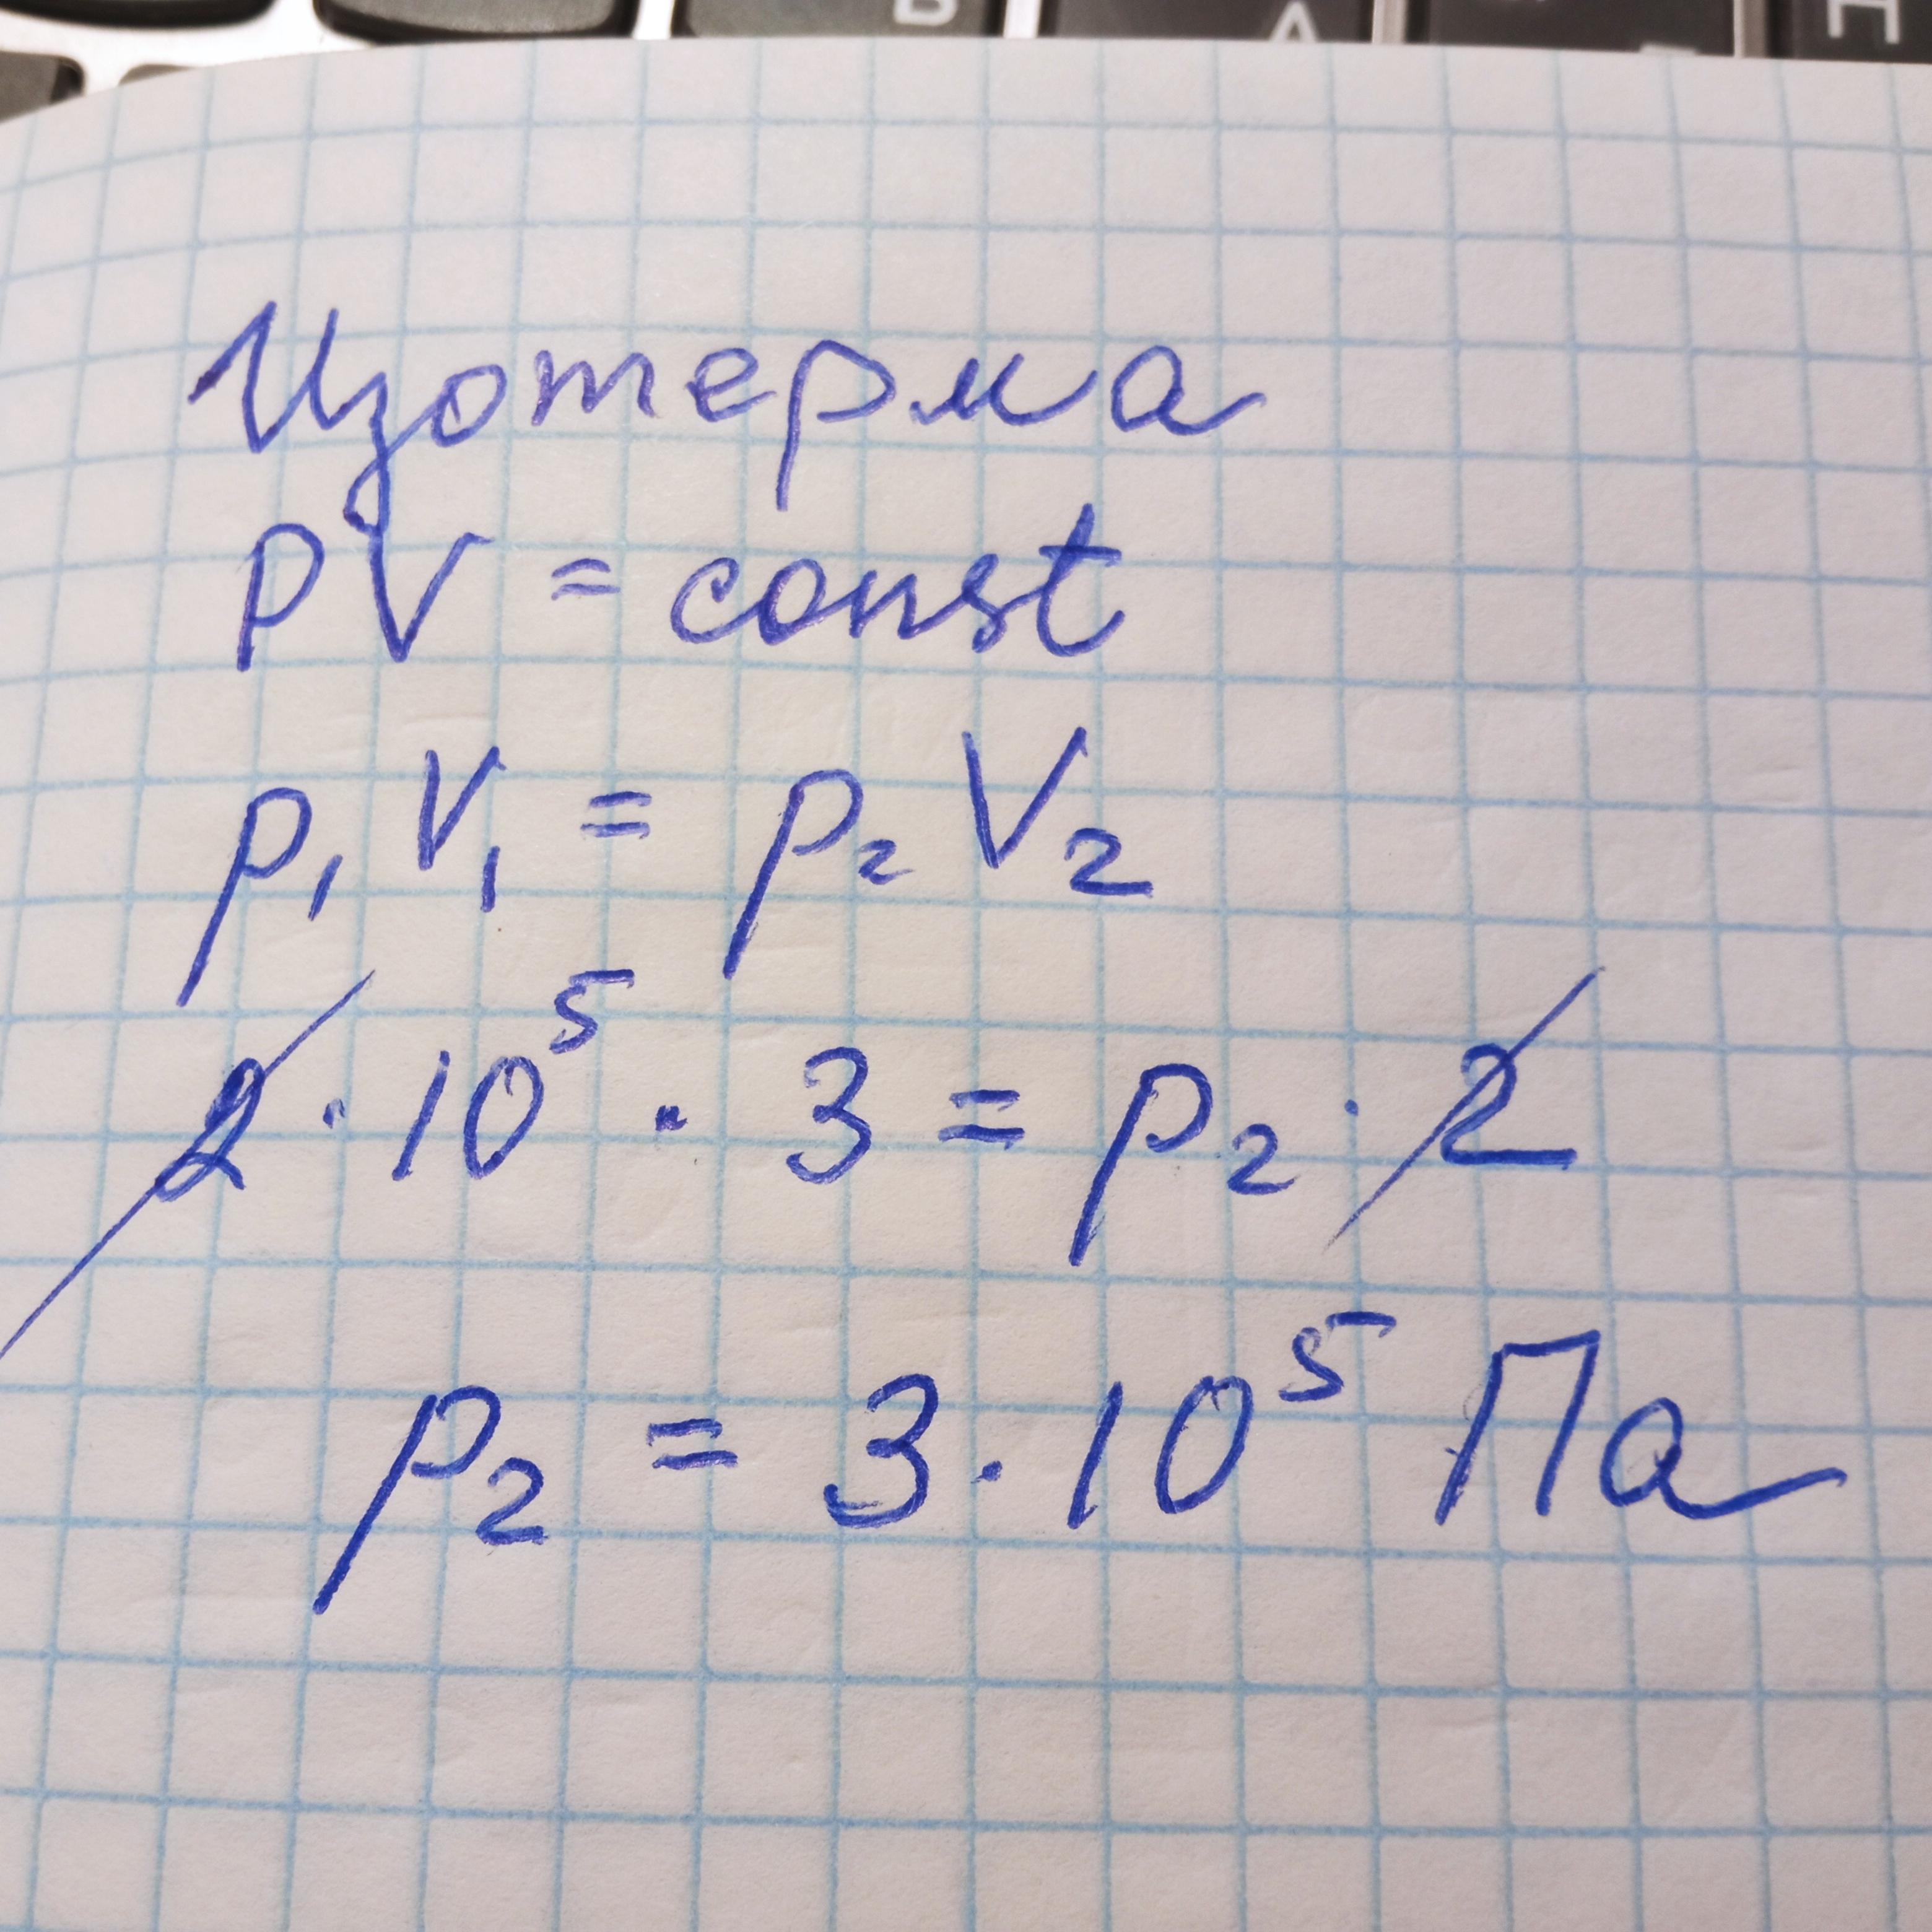 Изотерма
pV = const
p₁ V₁ = p₂ V₂
2 · 10⁵ · 3 = p₂ · 2
p₂ = 3 · 10⁵ Па